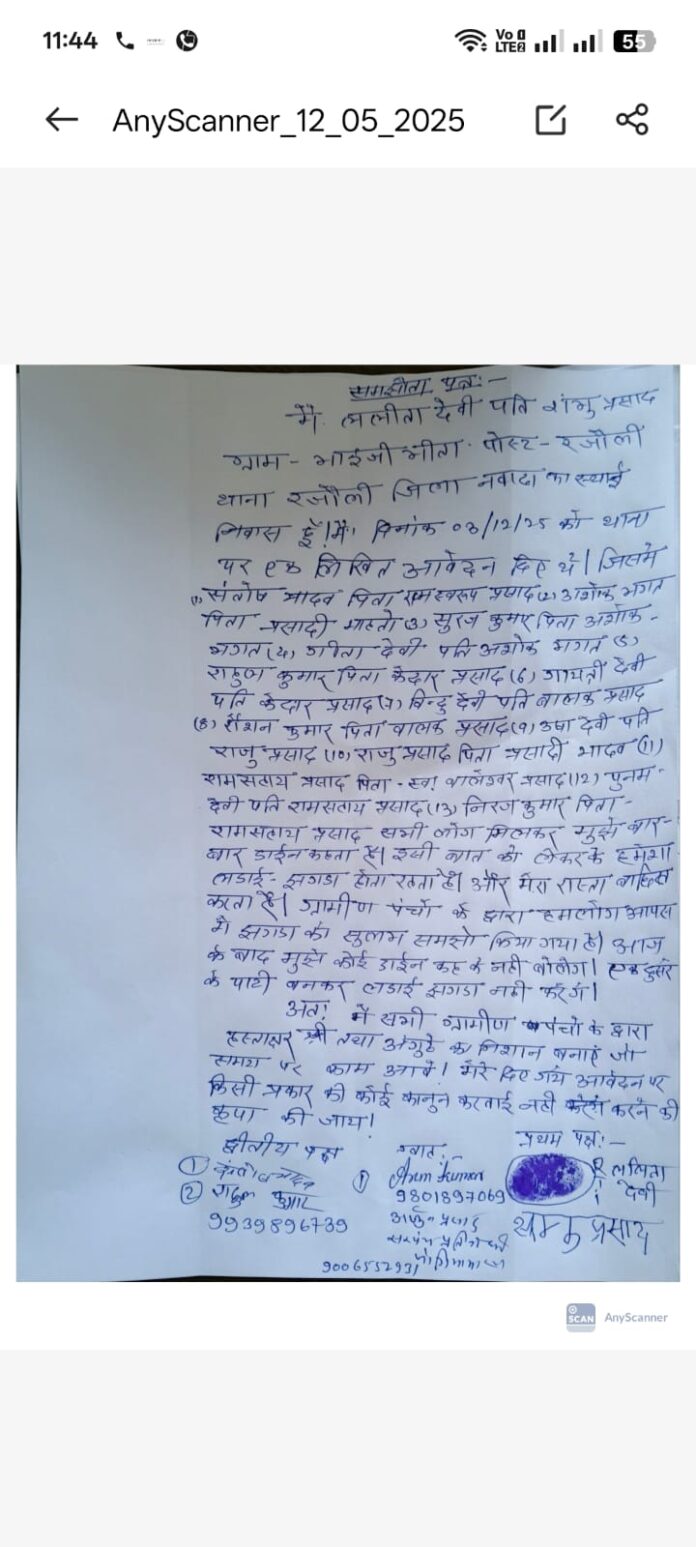 11:44
Vo LTE2
55
AnyScanner_12_05_2025
समझौता पत्र:-
मैं ललीता देवी पति शंभु प्रसाद
ग्राम - भाईजी भीता पोस्ट - रजौली
थाना रजौली जिला नवादा का स्थाई
निवास हूँ। मैं दिनांक 03/12/25 को थाना
पर एक लिखित आवेदन दिए थे। जिसमें
(1) संतोष यादव पिता रामस्वरूप प्रसाद (2) अशोक भगत
पिता प्रसादी महतो (3) सुरज कुमार पिता अशोक -
भगत (4) गीता देवी पति अशोक भगत (5)
राहुल कुमार पिता केदार प्रसाद (6) गायत्री देवी
पति केदार प्रसाद (7) विन्दु देवी पति बालक प्रसाद
(8) रौशन कुमार पिता बालक प्रसाद (9) उषा देवी पति
राजु प्रसाद (10) राजु प्रसाद पिता प्रसादी यादव (11)
रामसहाय प्रसाद पिता - स्व॰ बालेश्वर प्रसाद (12) पुनम -
देवी पति रामसहाय प्रसाद (13) निरज कुमार पिता -
रामसहाय प्रसाद सभी लोग मिलकर मुझे बार -
बार डाईन कहता है। इसी बात को लेकर के हमेशा
लडाई - झगडा होता रहता है। और मेरा रास्ता बाधित
करता है। ग्रामीण पंचो के द्वारा हमलोग आपस
में झगडा को सुलह किया गया है। आज
के बाद मुझे कोई डाईन कह के नही बोलेगा। एक दुसरे
के पार्टी बनकर लडाई झगडा नही करेंगे।
अतः मैं सभी ग्रामीण पंचो के द्वारा
हस्ताक्षर तथा अंगुठे का निशान बनाएं जो
समय पर काम आवे। मेरे दिए गये आवेदन पर
किसी प्रकार की कोई कानुन करवाई नही करने की
कृपा की जाय।
द्वीतीय पक्ष
गवाह:
प्रथम पक्ष:-
(1) संतोष यादव
(2) राहुल कुमार
9939896739
(1) Arun Kumar
9801897069
9006552931
ललिता देवी
प्रसाद
SCAN AnyScanner